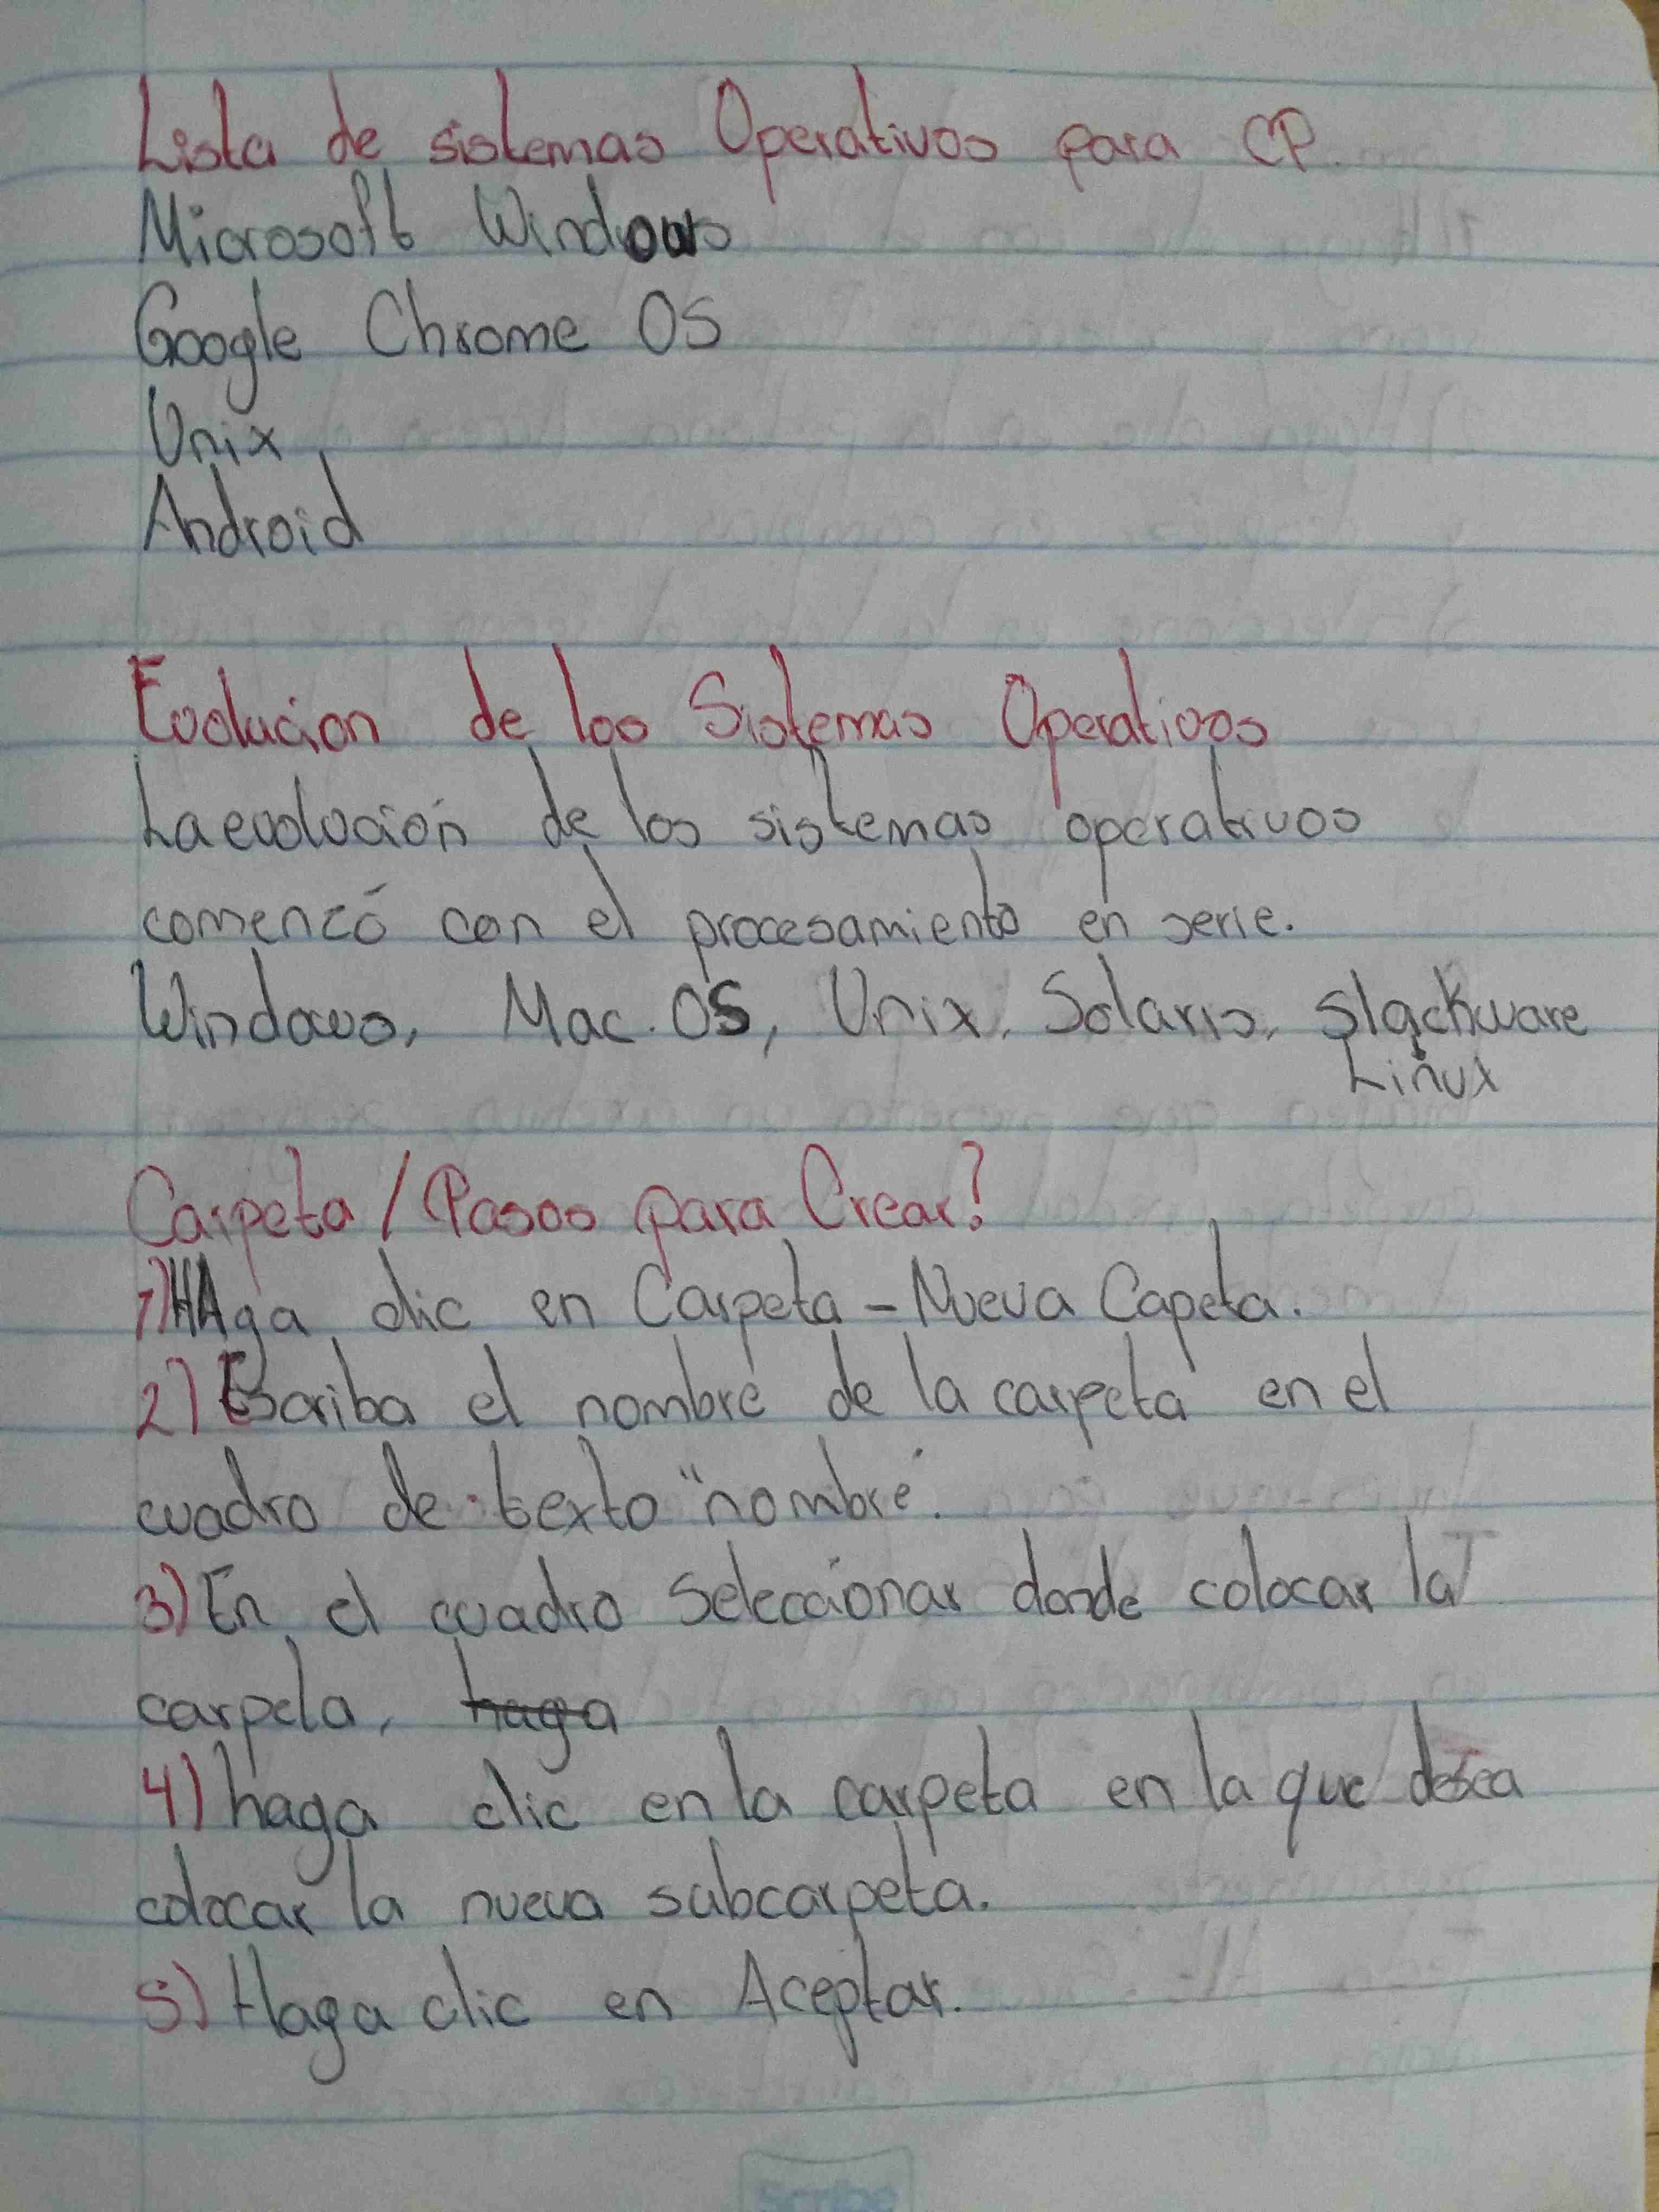 Lista de sistemas Operativos para CP.
Microsoft Windows
Google Chrome OS
Unix
Android
Evolucion de los Sistemas Operativos
La evolución de los sistemas operativos
comenzó con el procesamiento en serie.
Windows, Mac. OS, Unix, Solaris, Slackware
Linux
Carpeta / Pasos para Crear?
1) HAga clic en Carpeta - Nueva Capeta.
2) Escriba el nombre de la carpeta en el
cuadro de texto "nombre".
3) En el cuadro Seleccionar donde colocar la
carpeta, haga
4) haga clic en la carpeta en la que desea
colocar la nueva subcarpeta.
5) Haga clic en Aceptar.
Scribe